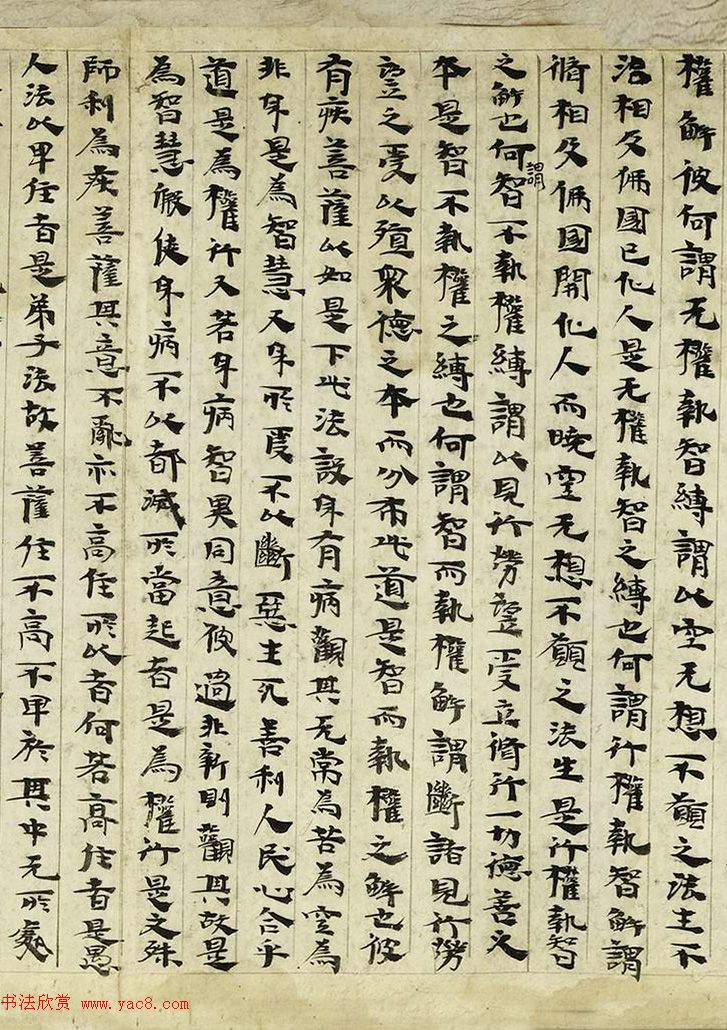 權解彼何謂无權執智縛謂以空无想不願之法生不
治相及佛國已化人是无權執智之縛也何謂行權執智解謂
脩相及佛國開化人而曉空无想不願之法生是行權執智
之解也何謂智不執權縛謂以見行勞望受立脩行一切德善之
本是智不執權之縛也何謂智而執權解謂斷諸見行勞
望之受以殖衆德之本而分布此道是智而執權之解也彼
有疾菩薩以如是下此法設身有病觀其无常為苦為空為
非身是為智慧又身所受不以斷惡生死善利人民心合乎
道是為權行又若身病智異同意彼過非新則觀其故是
為智慧假使身病不以都滅所當起者是為權行是文殊
師利為疾菩薩其意不亂亦不高住所以者何若高住者是愚
人法以卑住者是弟子法故菩薩住不高不卑於其中无所處
书法欣赏 www.yac8.com